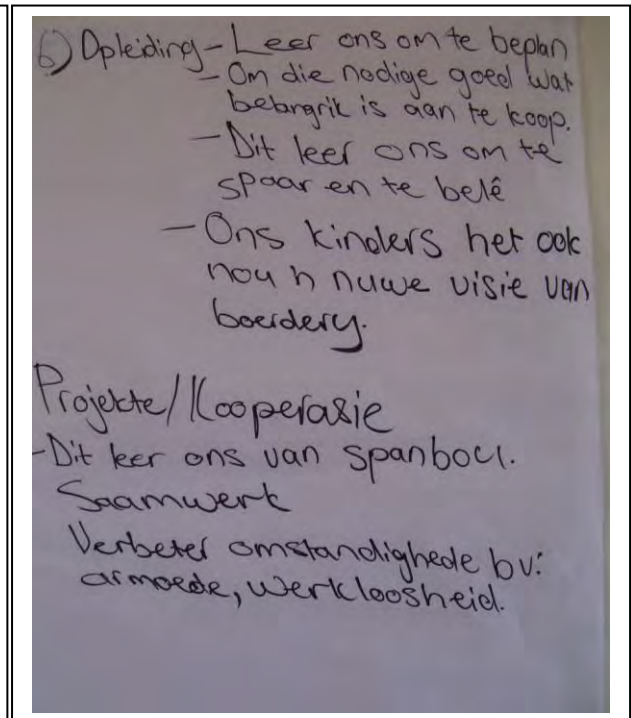 6) Opleiding - Leer ons om te beplan
- Om die nodige goed wat
belangrik is aan te koop.
- Dit leer ons om te
spaar en te belê
- Ons kinders het ook
nou 'n nuwe visie van
boerdery.
Projekte/Kooperasie
- Dit leer ons van spanbou.
Saamwerk
Verbeter omstandighede bv:
armoede, werkloosheid.